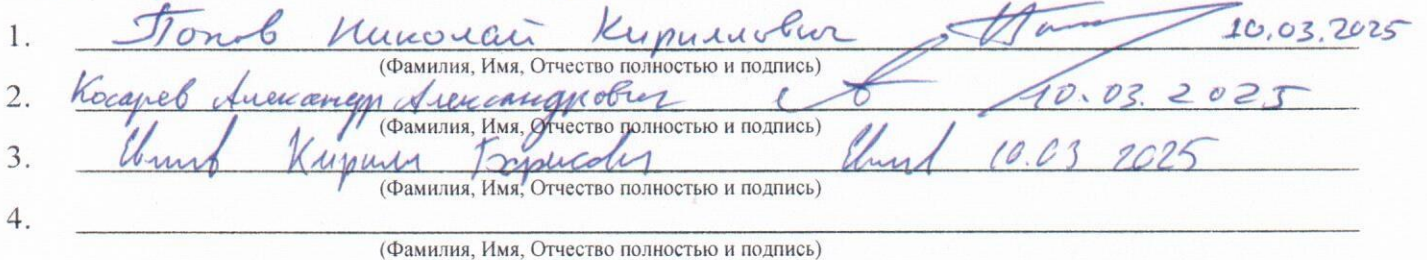 1. Попов Николай Кириллович 10.03.2025
(Фамилия, Имя, Отчество полностью и подпись)
2. Косарев Александр Александрович 10.03.2025
(Фамилия, Имя, Отчество полностью и подпись)
3. Кирилл Борисович 10.03 2025
(Фамилия, Имя, Отчество полностью и подпись)
4.
(Фамилия, Имя, Отчество полностью и подпись)